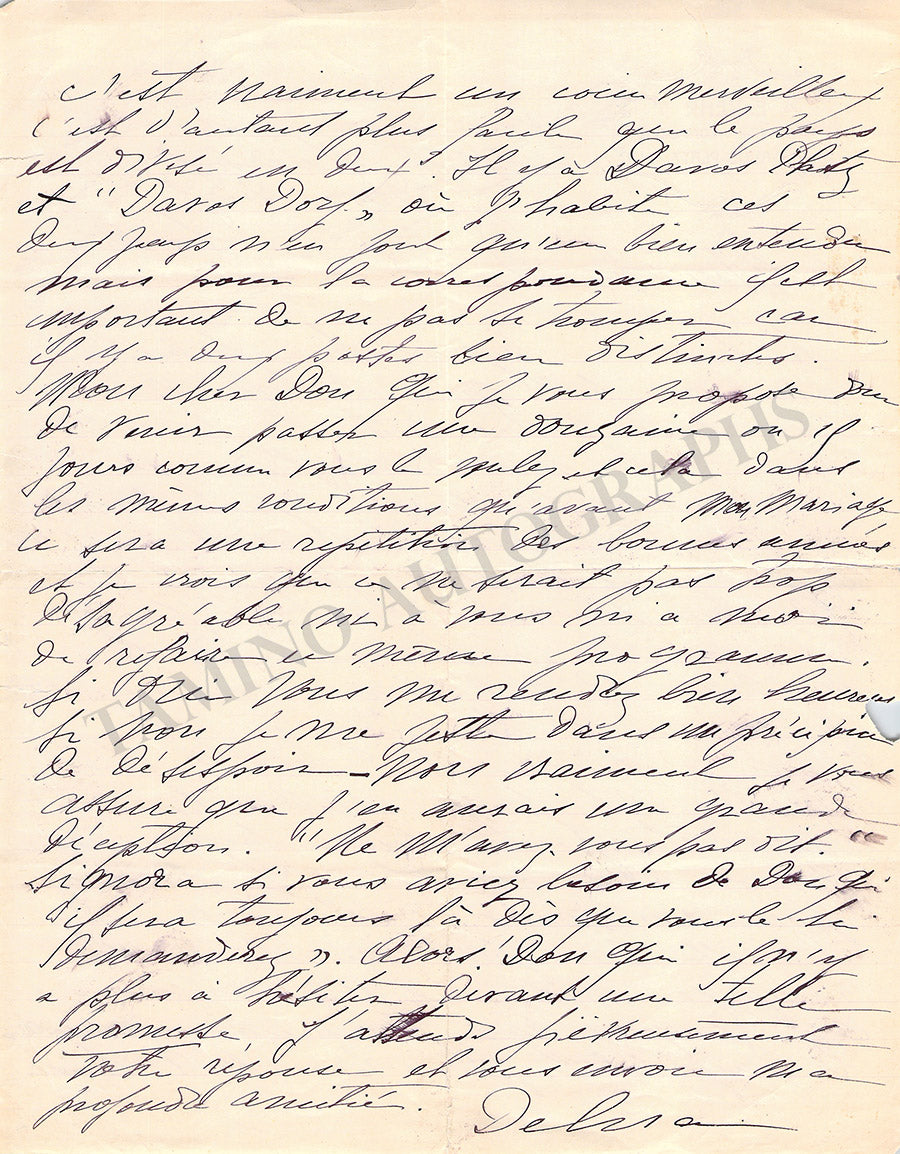 c'est vraiment un coin merveilleux
c'est d'autant plus que le pays
est divisé en deux. Il y a Davos Platz
et "Davos Dorf" où j'habite ces
deux n'en font qu'un bien entendu
mais pour la correspondance il est
important de ne pas se tromper car
il y a deux postes bien distinctes.
Mon cher Don Gin je vous propose donc
de venir passer une douzaine ou 15
jours comme vous le voulez et cela dans
les mêmes conditions qu'avant mon mariage
ce sera une répétition des bonnes années
et je crois que ce ne serait pas trop
désagréable ni à vous ni à moi
de refaire ce même programme.
Si oui vous me rendrez bien heureuse
Si non je me jette dans un précipice
de désespoir - Non vraiment je vous
assure que j'en aurais une grande
déception. "Ne m'avez vous pas dit."
Signora si vous aviez besoin de Don Gin
il sera toujours là dès que vous le lui
demanderez". Alors! Don Gin il n'y
a plus à hésiter devant une telle
promesse, j'attends fiévreusement
votre réponse et vous envoie ma
profonde amitié.
TAMINO AUTOGRAPHS